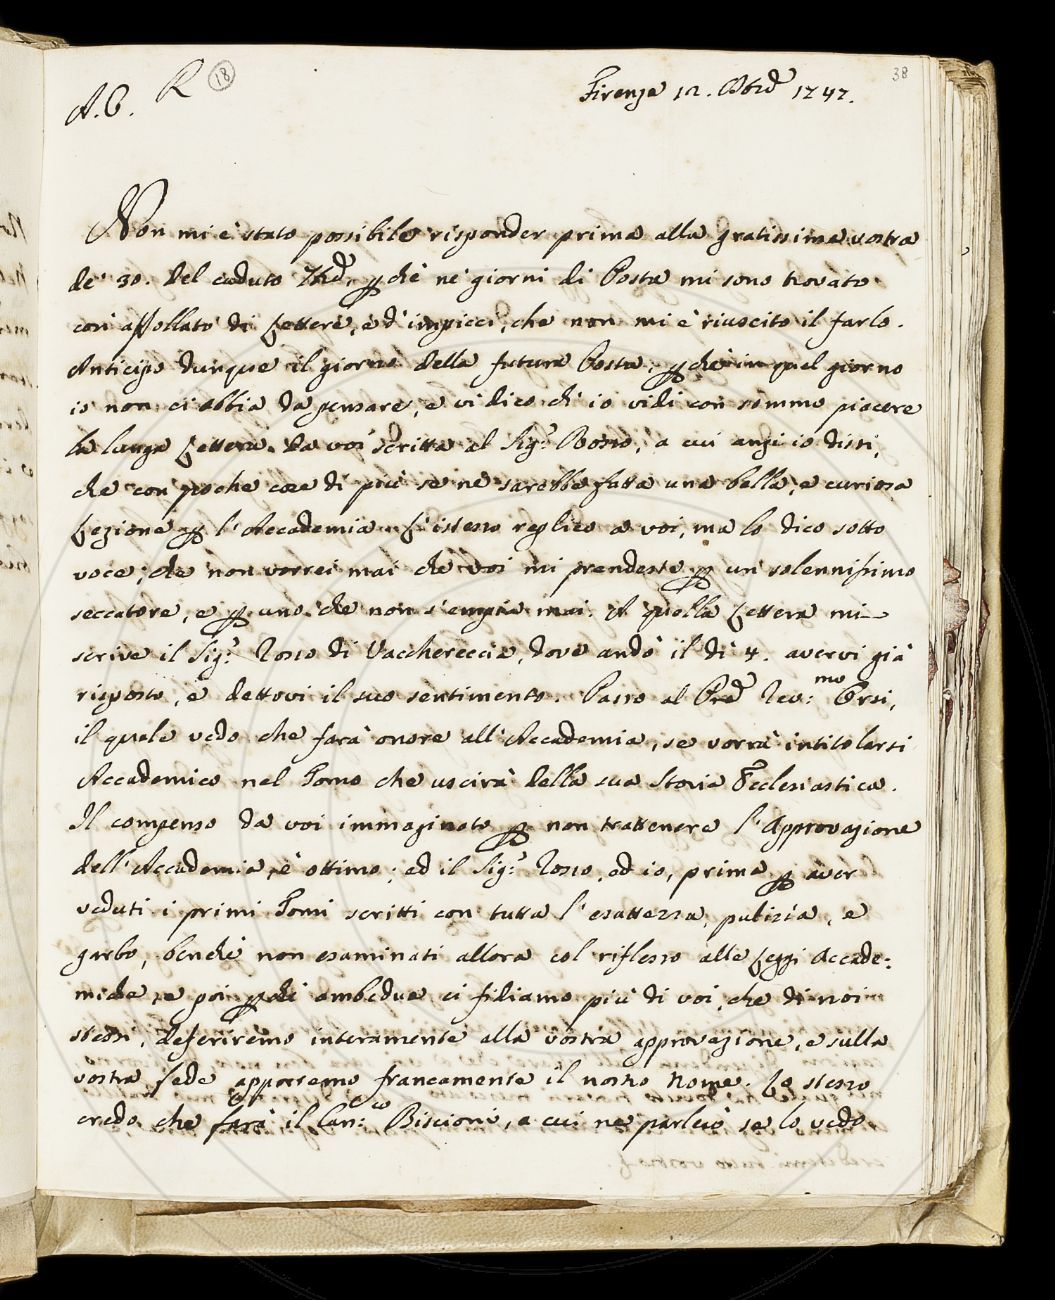 A. C. R 18 38
Firenze 12. Ottbre 1747.
Non mi è stato possibile risponder prima alla gratissima vostra
de' 30. del caduto 7bre, pchè ne' giorni di Posta mi sono trovato
così affollato di Lettere, e d'impicci, che non mi è riuscito il farlo.
Anticipo dunque il giorno della futura Posta, pchè in quel giorno
io non ci abbia da pensare, e vi dico ch' io vidi con sommo piacere
la lunga Lettera da voi scritta al Sigr. Rosso, a cui anzi io dissi,
che con poche cose di più se ne sarebbe fatta una bella, e curiosa
Lezione p l'Accademia. L'istesso replico a voi, ma lo dico sotto
voce, che non vorrei mai che voi mi prendeste p un solennissimo
seccatore, e p uno che non s'empia mai. A quella Lettera mi
scrive il Sigr. Rosso di Vacchereccia, dove andò il dì 4. avervi già
risposto, e dettovi il suo sentimento. Passo al Pre Rev:mo Orsi,
il quale vedo che farà onore all'Accademia, se vorrà intitolarsi
Accademico nel Tomo che uscirà della sua Storia Ecclesiastica.
Il compenso da voi immaginato p non trattenere l'Approvazione
dell'Accademia, è ottimo; ed il Sigr. Rosso, ed io, prima p aver
veduti i primi Tomi scritti con tutta l'esattezza, pulizia, e
garbo, benchè non esaminati allora col riflesso alle Leggi Accade-
miche, e poi pchè ambedue ci fidiamo più di voi, che di noi
stessi, deferiremo interamente alla vostra approvazione, e sulla
vostra fede apporremo francamente il nostro Nome. Lo stesso
credo che farà il Can:co Biscioni, a cui ne parlerò se lo vedo